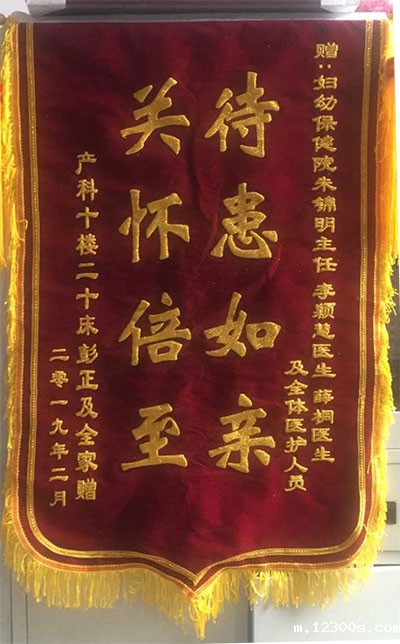 赠:妇幼保健院朱锦明主任 李颖慧医生 薛桐医生
及全体医护人员
待患如亲
关怀倍至
产科十楼二十床彭正及全家赠
二零一九年二月
m.12300s.com